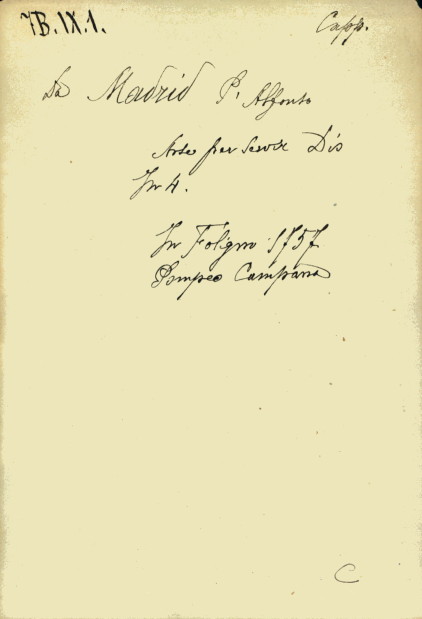 7B.IX.1.
Capp.
Da Madrid P. Alfonso
Arte per servir Dio
In 4.
In Foligno 1757
Pompeo Campana
C